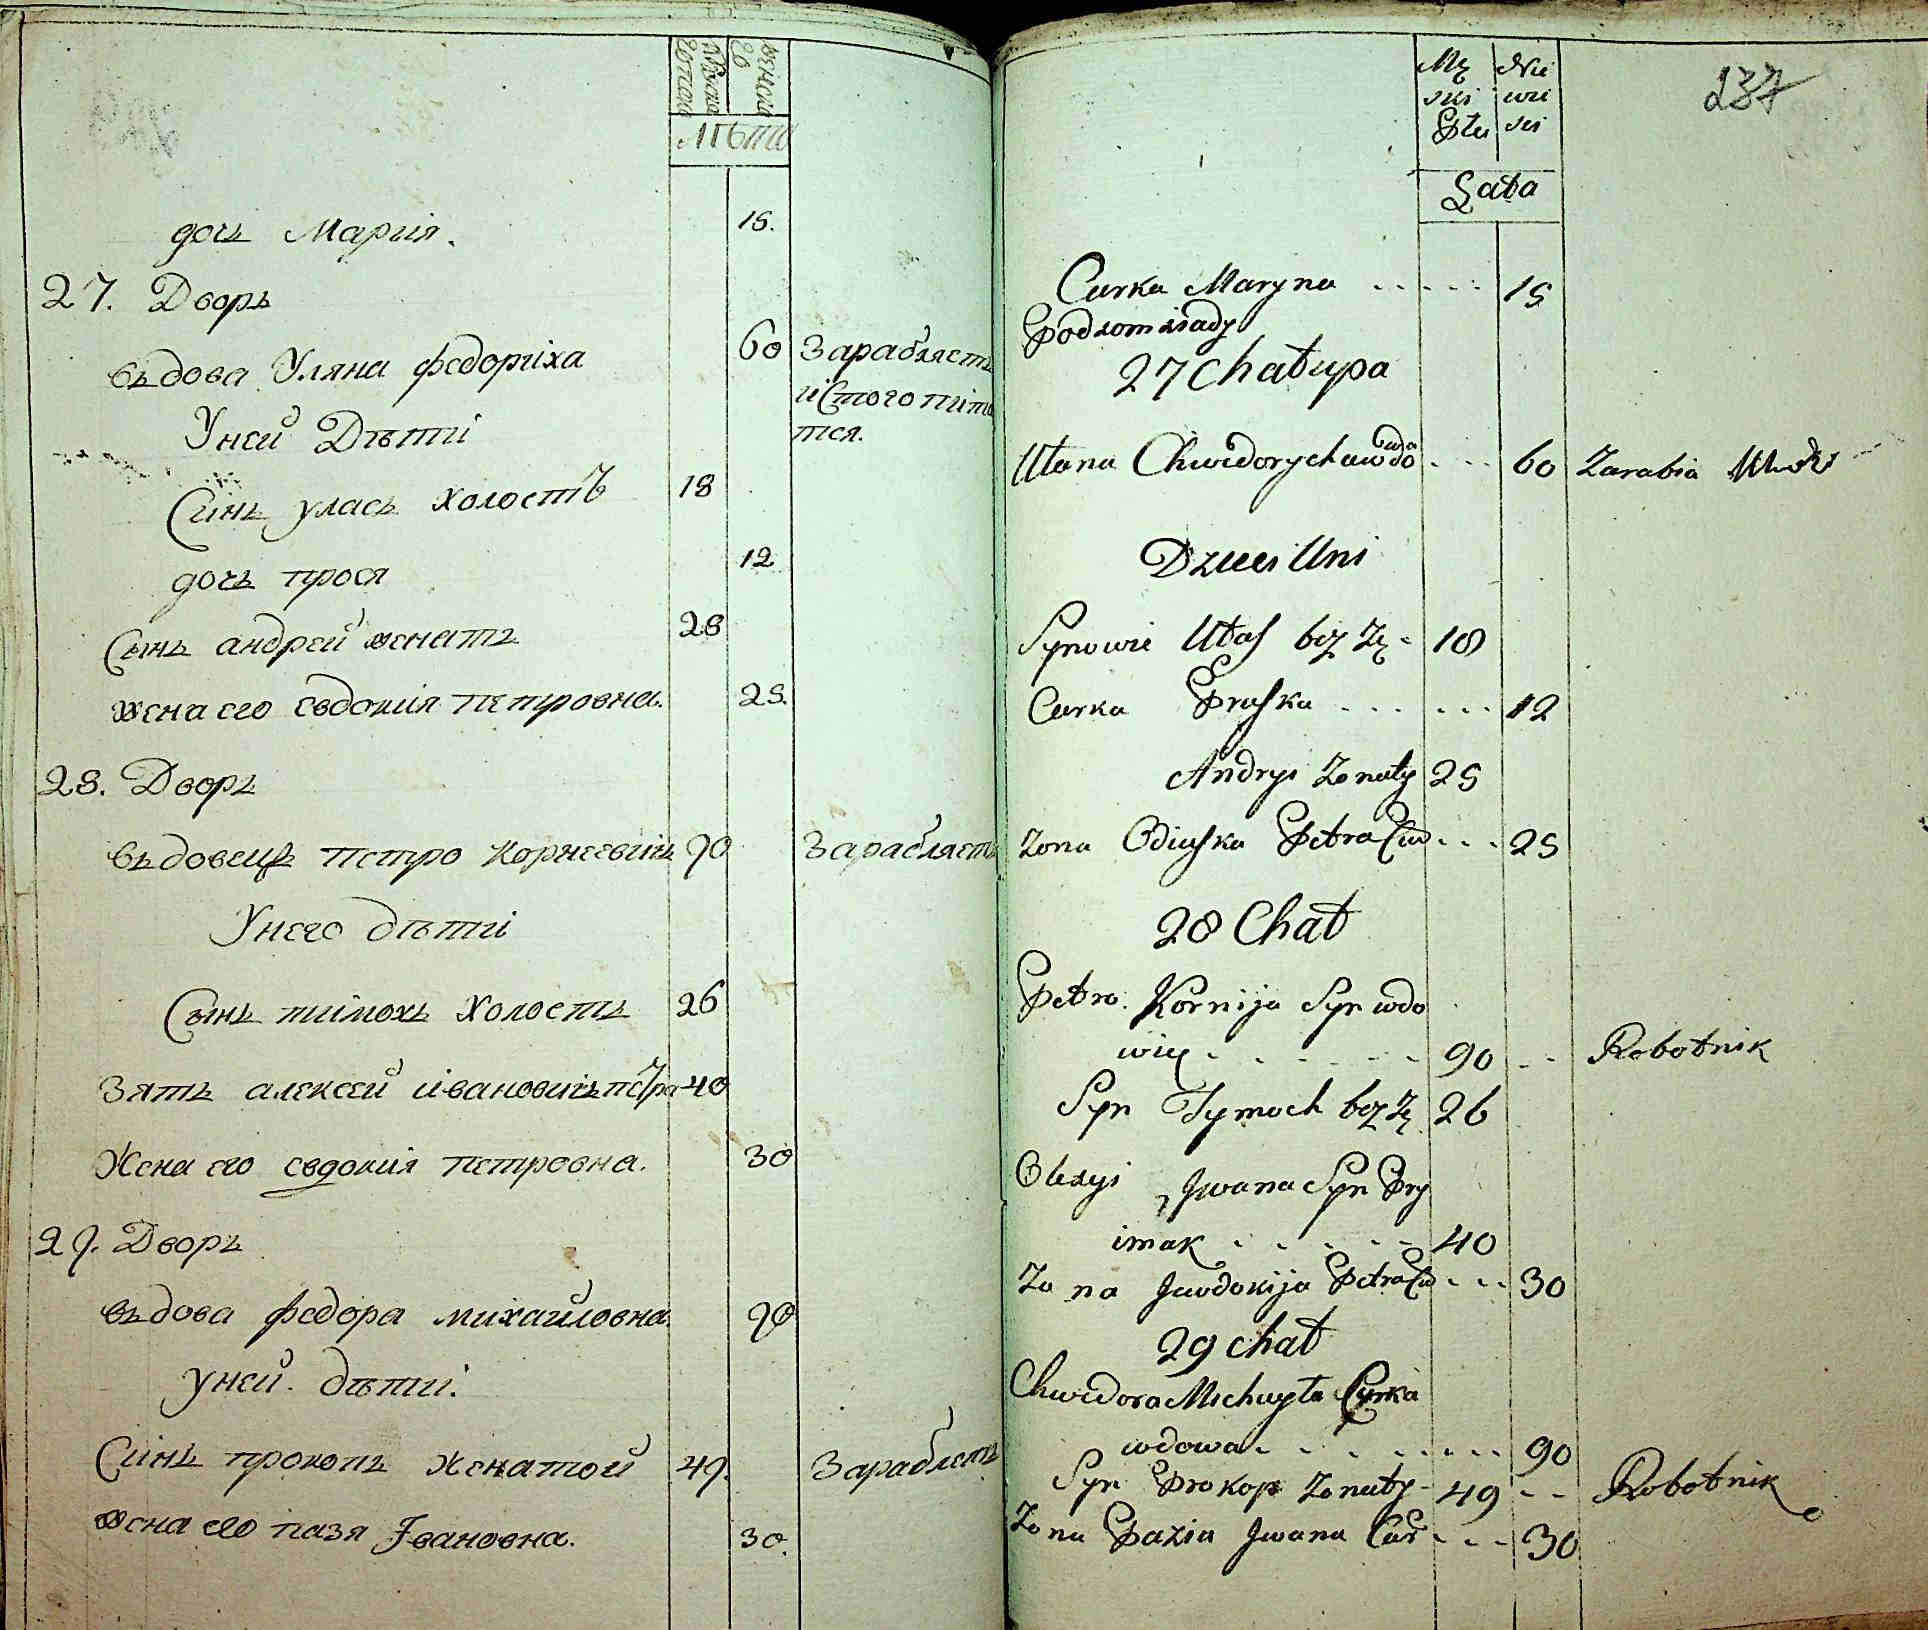 женска
лѣта
дочь Мария. 15.
27. Дворъ
въдова Уляна федориха 60 Зарабляетъ
У ней Дѣти
истого пита
тся.
Синъ уласъ холостъ 18
дочь прося 12
Сынъ андрей женатъ 28
жена его евдокия петровна. 25.
28. Дворъ
въдовецъ петро корнеевичъ 90 Зарабляетъ
У него дѣти
Сынъ тимохъ холостъ 26
Зять алексей ивановичъ петра 40
Жена его евдокия петровна. 30
29. Дворъ
въдова федора михайловна. 90
у ней. дѣти.
Синъ прокопъ женатой 49. Зараблетъ
жена его пазя Івановна. 30.
Mę Nie
ski wie
Płei ski
237
Łata
Curka Maryna 15
Pod zomsiady
27 Chałupa
Ułana Chwedorycha wdo 60 Zarabia
wa
Dzieci Uni
Synowie Ułas bez Zę 18
Curka Pruska 12
Andryi Zonaty 25
Zona Odiuska Petra Cur 25
28 Chał
Petro Kornija Syn wdo
wiec 90 Robotnik
Syn Tymoch bez Zę 26
Olexyi Jwana Syn Pry
imak 40
Zona Jwdokija Petra Cur 30
29 chał
Chwedora Michayła Curka
wdowa 90
Syn Prokop Zonaty 49 Robotnik
Zona Pazia Jwana Cur 30